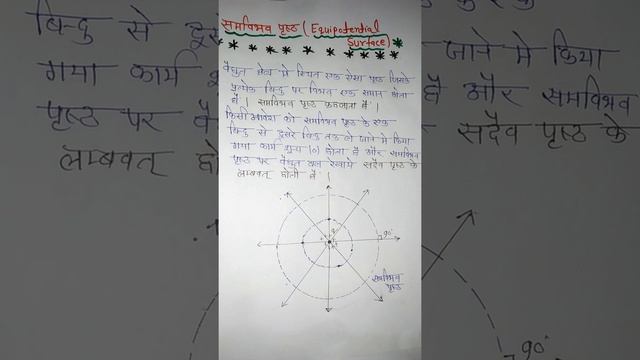 समविभव पृष्ठ (Equipotential
Surface)
वैद्युत क्षेत्र में स्थित एक ऐसा पृष्ठ जिसके
प्रत्येक बिन्दु पर विभव एक समान होता
है। समविभव पृष्ठ कहलाता है।
किसी आवेश को समविभव पृष्ठ के एक
बिन्दु से दूसरे बिन्दु तक ले जाने में किया
गया कार्य शून्य (0) होता है और समविभव
पृष्ठ पर वैद्युत बल रेखायें सदैव पृष्ठ के
लम्बवत् होती हैं।
90°
समविभव
पृष्ठ
बिन्दु से
जाने में किया
गया कार्य
है और समविभव
पृष्ठ पर
सदैव पृष्ठ के
लम्बवत्
90°